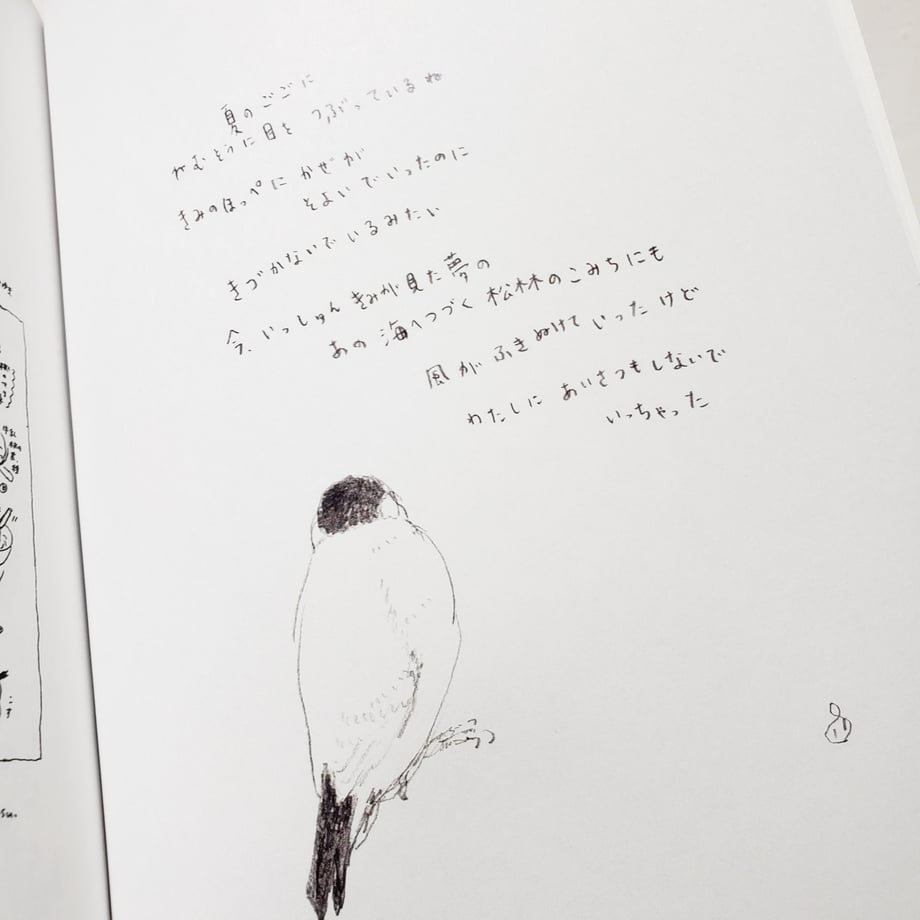 夏のごごに
がむしゃらに目を つぶっているね
きみのほっぺに かぜが
そよいでいったのに
きづかないでいるみたい
今、いっしゅん きみが見た夢の
あの 海へつづく 松林のこみちにも
風が ふきぬけて いったけど
わたしに あいさつもしないで
いっちゃった